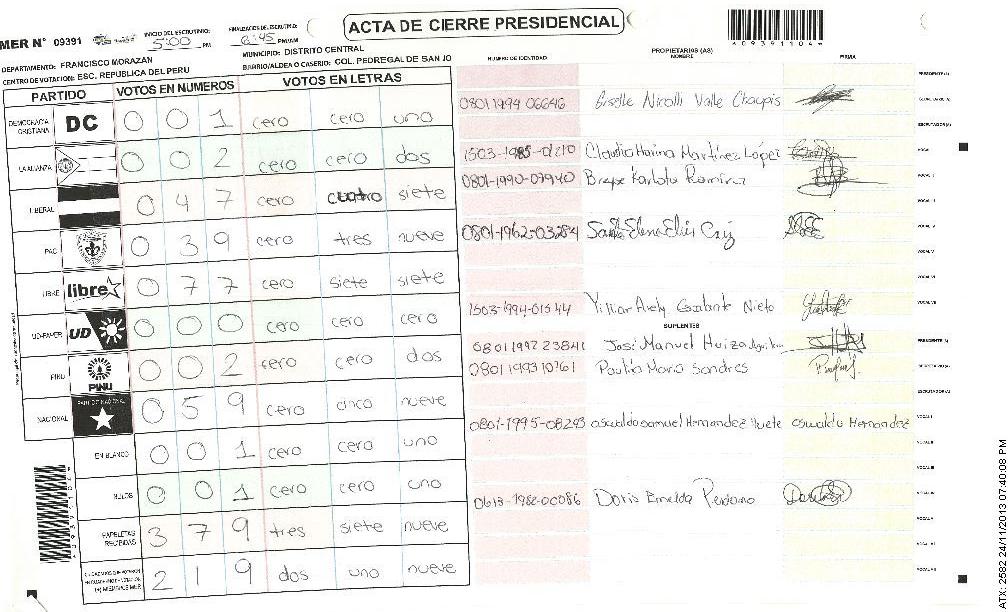 ACTA DE CIERRE PRESIDENCIAL
MER N° 09391
INICIO DEL ESCRUTINIO: 5:00 PM
FINALIZACIÓN DEL ESCRUTINIO: 6:45 PM/AM
*09391104*
DEPARTAMENTO: FRANCISCO MORAZAN
MUNICIPIO: DISTRITO CENTRAL
CENTRO DE VOTACION: ESC. REPUBLICA DEL PERU
BARRIO/ALDEA O CASERIO: COL. PEDREGAL DE SAN JO
PARTIDO VOTOS EN NUMEROS VOTOS EN LETRAS
DEMOCRACIA CRISTIANA DC 0 0 1 cero cero uno
LA ALIANZA 0 0 2 cero cero dos
LIBERAL 0 4 7 cero cuatro siete
PAC 0 3 9 cero tres nueve
LIBRE libre 0 7 7 cero siete siete
UD-FAPER UD 0 0 0 cero cero cero
PINU PINU 0 0 2 cero cero dos
NACIONAL 0 5 9 cero cinco nueve
EN BLANCO 0 0 1 cero cero uno
NULOS 0 0 1 cero cero uno
PAPELETAS RECIBIDAS 3 7 9 tres siete nueve
2 1 9 dos uno nueve
NUMERO DE IDENTIDAD
PROPIETARIOS (AS)
NOMBRE
FIRMA
0801 1994 06646 Giselle Nicolli Valle Chaupis
Claudia Marina Martínez López
0801-1990-07940 Ramirez
0801-1962-03284
1503-1994-01544 Nieto
SUPLENTES
0801 1992 23841 José Manuel
0801 1993 10761 Maria Sandres
0801-1995-08293 oswaldo samuel Hernandez oswaldo Hernandez
0613-1982-00086 Doris
PRESIDENTE (A)
SECRETARIO (A)
ESCRUTADOR (A)
VOCAL I
VOCAL II
VOCAL III
VOCAL IV
VOCAL V
VOCAL VI
VOCAL VII
PRESIDENTE (A)
SECRETARIO (A)
ESCRUTADOR (A)
VOCAL I
VOCAL II
VOCAL III
VOCAL IV
VOCAL V
VOCAL VI
VOCAL VII
ATX: 2582 24/11/2013 07:40:08 PM